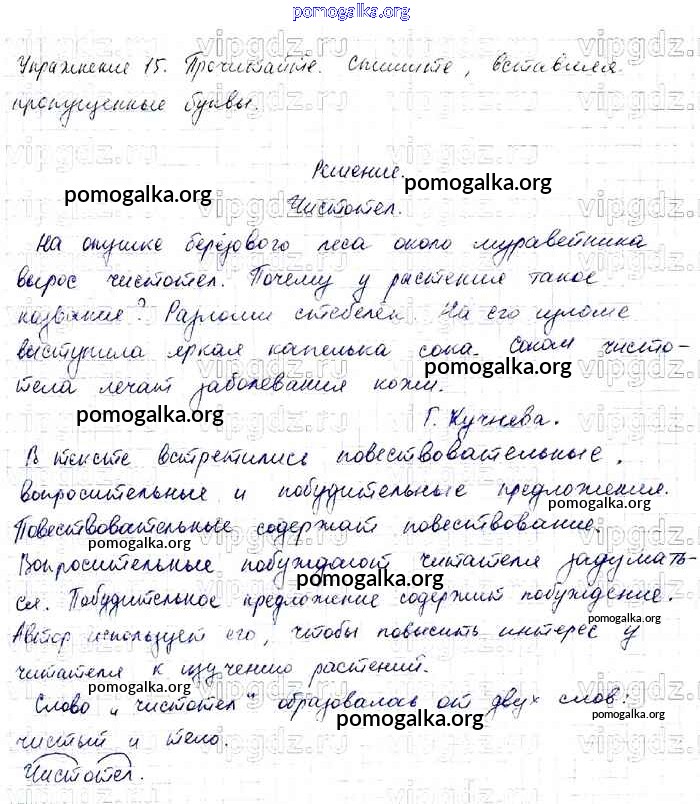 pomogalka.org
Упражнение 15. Прочитайте. Спишите, вставляя
пропущенные буквы.
Решение.
pomogalka.org pomogalka.org
Чистотел.
На опушке берёзового леса около муравейника
вырос чистотел. Почему у растения такое
название? Разломи стебелек. На его изломе
выступила яркая капелька сока. Соком чисто-
тела лечат заболевания кожи.
pomogalka.org pomogalka.org
Г. Кучнева.
В тексте встретились повествовательные,
вопросительные и побудительные предложения.
pomogalka.org
Повествовательные содержат повествование.
pomogalka.org
Вопросительные побуждают читателя задумать-
ся. Побудительное предложение содержит побуждение.
pomogalka.org
Автор использует его, чтобы повысить интерес у
pomogalka.org
читателя к изучению растений.
pomogalka.org
Слово „чистотел" образовалось от двух слов:
pomogalka.org pomogalka.org
чистый и тело.
Чистотел.